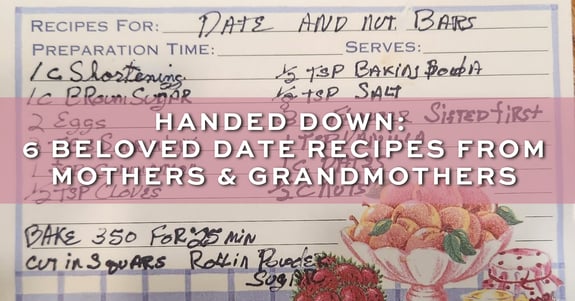 RECIPES FOR: DATE AND NUT BARS
PREPARATION TIME: SERVES:
1C Shortening ½ TSP BAKING
1C BROWN SUGAR ½ TSP SALT
2 Eggs SISTED first
HANDED DOWN:
6 BELOVED DATE RECIPES FROM
MOTHERS & GRANDMOTHERS
½ TSP CLOVES ½ C NUTS
BAKE 350 FOR 25 MIN
CUT in SQUARS Roll in Powder
SugAR